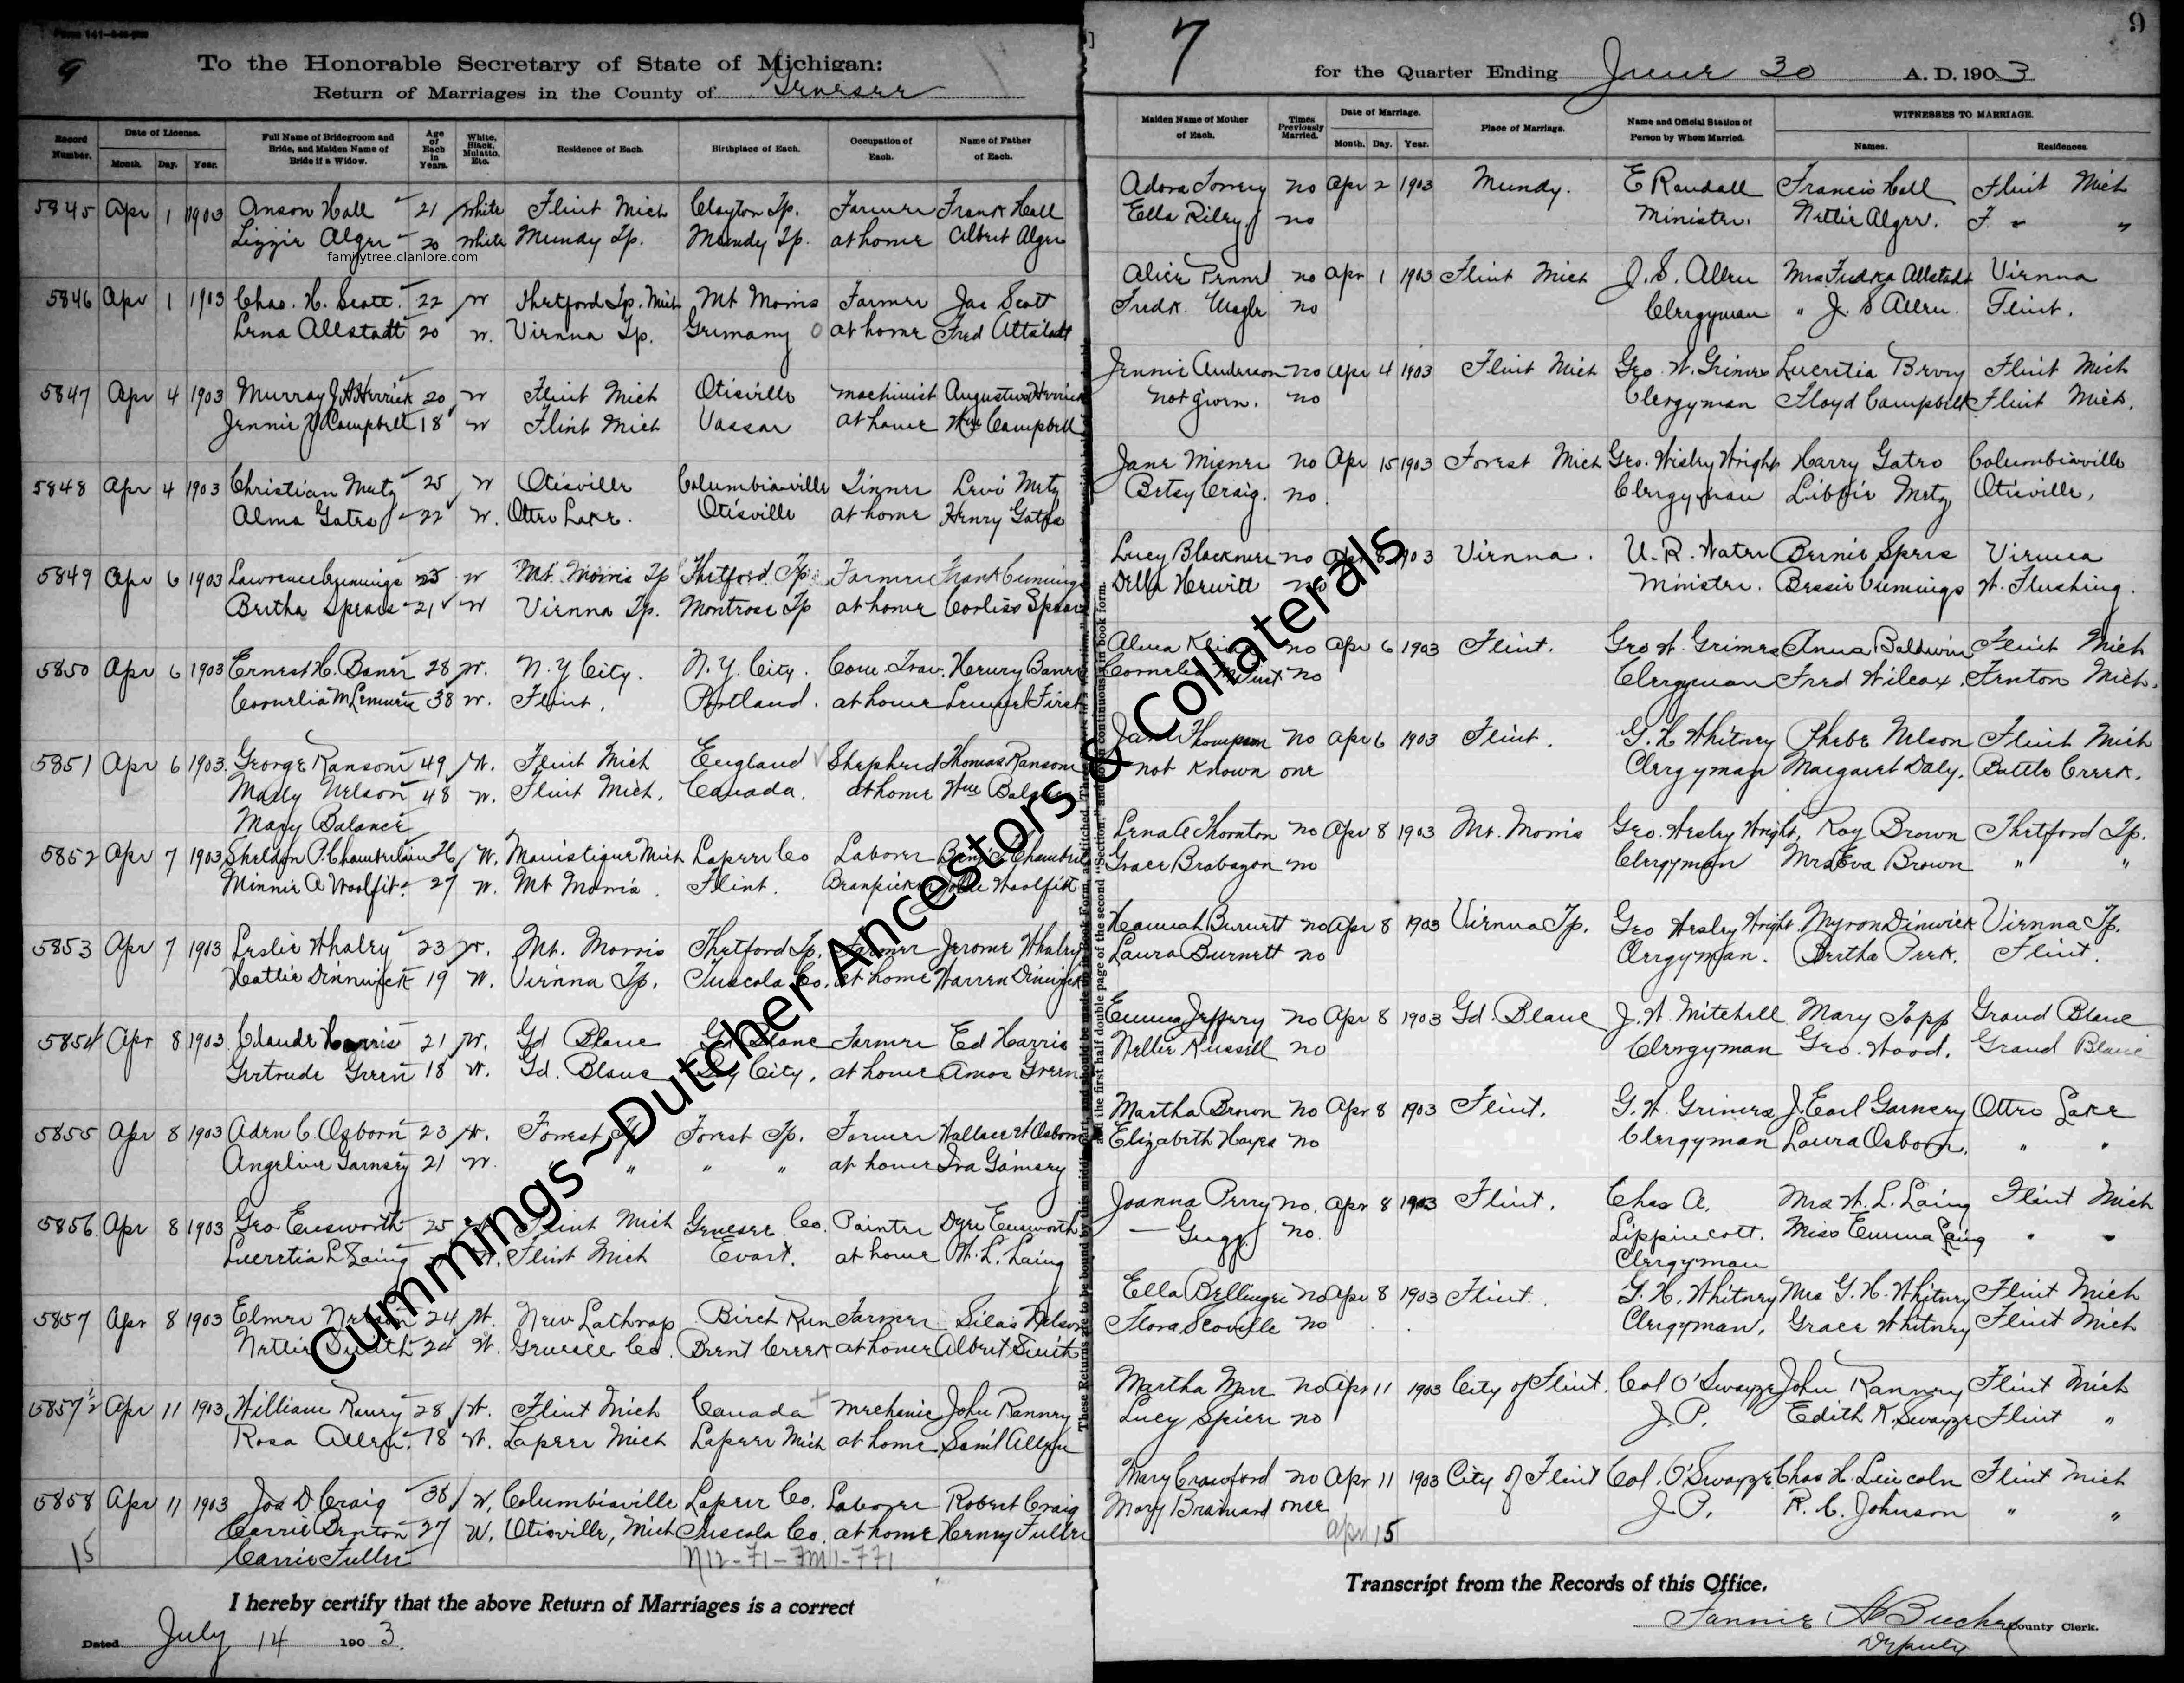 9
To the Honorable Secretary of State of Michigan:
Return of Marriages in the County of Genesee
7
9
for the Quarter Ending June 30 A. D. 1903
Record Number. Date of License. Month. Day. Year. Full Name of Bridegroom and Bride, and Maiden Name of Bride if a Widow. Age of Each in Years. White, Black, Mulatto, Etc. Residence of Each. Birthplace of Each. Occupation of Each. Name of Father of Each.
Maiden Name of Mother of Each. Times Previously Married. Date of Marriage. Month. Day. Year. Place of Marriage. Name and Official Station of Person by Whom Married. WITNESSES TO MARRIAGE. Names. Residences.
5845 Apr 1 1903 Anson Hall 21 White Flint Mich Clayton Tp. Farmer Frank Hall Adora no Apr 2 1903 Mundy. E Randall Francis Hall Flint Mich
Lizzie Alger 20 White Mundy Tp. Mundy Tp. at home Albert Alger Ella Riley no Minister. Nettie Alger. F. " "
familytree.clanlore.com
5846 Apr 1 1903 Chas. H. Scott. 22 W Thetford Tp. Mich Mt Morris Farmer Jas Scott Alice no Apr 1 1903 Flint Mich J. S. Allen Mrs Fredka Allstadt Vienna
Lena Allstadt 20 W. Vienna Tp. Germany at home Fred Attstadt Fredk. no Clergyman " J. S Allen. Flint.
5847 Apr 4 1903 Murray J. A. Herrick 20 W Flint Mich Otisville machinist Augustus Herrick Jennie Anderson no Apr 4 1903 Flint Mich Geo. W. Grimes Lucretia Berry Flint Mich
Jennie Campbell 18 W Flint Mich Vassar at home Wm Campbell not given. no Clergyman Floyd Campbell Flint Mich.
5848 Apr 4 1903 Christian Metz 25 W Otisville Columbiaville Tinner Levi Metz Jane Misner no Apr 15 1903 Forest Mich Geo. Wesley Wright Harry Gates Columbiaville
Alma Gates 22 W. Otter Lake. Otisville at home Henry Gates Betsy Craig. no. Clergyman Libbie Metz Otisville,
5849 Apr 6 1903 Lawrence Cummings 25 W Mt. Morris Tp Thetford Tp. Farmer Frank Cummings Lucy Blackmere no Apr 8 1903 Vienna. U. R. Water Bernie Spers Vienna
Bertha Spears 21 W Vienna Tp. Montrose Tp at home Corliss Spears Della Hewitt no Minister. Bessie Cummings W. Flushing.
5850 Apr 6 1903 Ernest H. Baner 28 W. N. Y City. N. Y. City. Com. Trav. Henry Baner Alma no Apr 6 1903 Flint. Geo W. Grimes Anna Baldwin Flint Mich
Cornelia M. 38 W. Flint, Portland. at home Cornelia no Clergyman Fred Wilcox. Fenton Mich.
5851 Apr 6 1903. George Ransom 49 W. Flint Mich England Shepherd Thomas Ransom Jane Thompson no Apr 6 1903 Flint. G. H Whitney Phebe Nelson Flint Mich
Mary Nelson 48 W. Flint Mich. Canada. at home Wm not known one Clergyman Margaret Daly. Battle Creek.
Mary Balance
5852 Apr 7 1903 Sheldon P. Chamberlain 26 W. Manistique Mich Lapeer Co Laborer Lena A Thornton no Apr 8 1903 Mt. Morris Geo. Wesley Wright, Roy Brown Thetford Tp.
Minnie A Woolfit 27 W. Mt Morris. Flint. Beanpicker Woolfitt Grace Brabazon no Clergyman Mrs Eva Brown " "
5853 Apr 7 1903 Leslie Whaley 23 W. Mt. Morris Thetford Tp. Farmer Jerome Whaley Hannah Burnett no Apr 8 1903 Vienna Tp. Geo Wesley Wright Myron Dinwick Vienna Tp.
Hattie Dinnwick 19 W. Vienna Tp. Tuscola Co. at home Warren Laura Burnett no Clergyman. Bertha Peek. Flint.
5854 Apr 8 1903 Claude Harris 21 W. Gd Blanc Gd Blanc Farmer Ed Harris Emma Jeffery no Apr 8 1903 Gd. Blanc J. W. Mitchell Mary Topp Grand Blanc
Gertrude Green 18 W. Gd. Blanc Bay City, at home Amos Green Nellie Russell no Clergyman Geo. Wood. Grand Blanc
5855 Apr 8 1903 Aden C Osborn 23 W. Forest Tp Forest Tp. Farmer Wallace W Osborn Martha Brown no Apr 8 1903 Flint. G. W. Grimes J. Earl Garnsey Otter Lake
Angeline Garnsey 21 W. " " " " at home Ira Garnsey Elizabeth Hayes no Clergyman Laura Osborn. " "
5856. Apr 8 1903 Geo Ensworth 25 W. Flint Mich Genesee Co. Painter Dyre Ensworth Joanna Perry no. Apr 8 1903 Flint. Chas A. Mrs W. L. Laing Flint Mich
Lucretia L Laing W. Flint Mich Evart. at home W. L. Laing — Gugg no. Lippincott. Miss Emma Laing " "
Clergyman
5857 Apr 8 1903 Elmer Nelson 24 W. New Lathrop Birch Run Farmer Silas Nelson Ella Bellinger no Apr 8 1903 Flint. G. H. Whitney Mrs G. H. Whitney Flint Mich
Nettie Smith 24 W. Genesee Co. Brent Creek at home Albert Smith Flora Scoville no Clergyman. Grace Whitney Flint Mich
5857½ Apr 11 1903 William Raney 28 W. Flint Mich Canada mechanic John Ranney Martha Marr no Apr 11 1903 City of Flint. Col O'Swayze John Ranney Flint Mich
Rosa Allen. 18 W. Lapeer Mich Lapeer Mich at home Saml Allen Lucy Spicer no J. P. Edith K. Swayze Flint "
5858 Apr 11 1903 Jos D Craig 38 W. Columbiaville Lapeer Co. Laborer Robert Craig Mary Crawford no Apr 11 1903 City of Flint Col. O'Swayze Chas H. Lincoln Flint Mich
Carrie Benton 27 W. Otisville, Mich Tuscola Co. at home Henry Fuller Mary Brainard once J. P. R. C. Johnson " "
15 Carrie Fuller
Apr 15
Cummings~Dutcher Ancestors & Collaterals
I hereby certify that the above Return of Marriages is a correct
Transcript from the Records of this Office.
Dated July 14 1903.
Fannie County Clerk.
Deputy